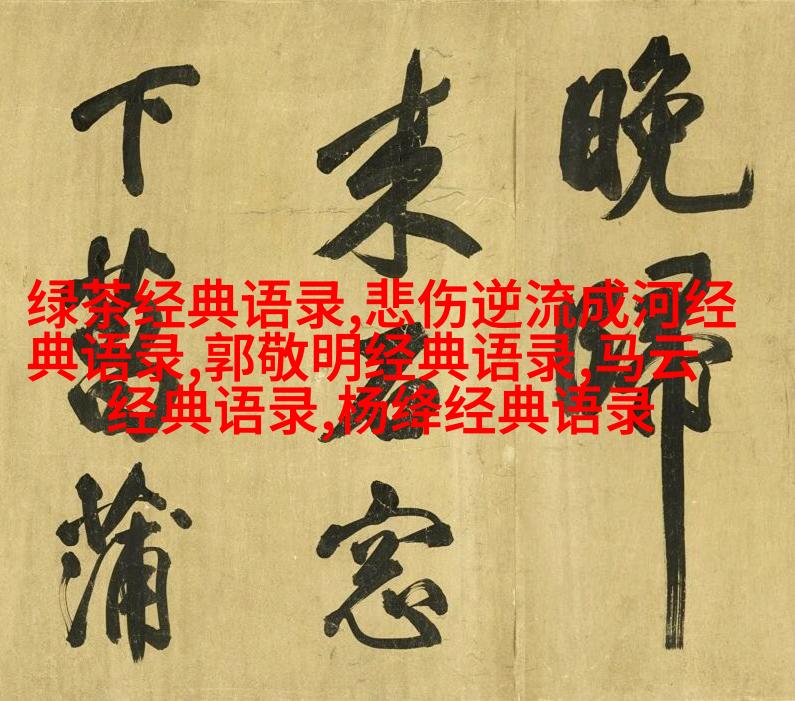 绿茶经典语录,悲伤逆流成河经
典语录,郭敬明经典语录,马云
经典语录,杨绛经典语录
晚歸
来窓
下菖蒲